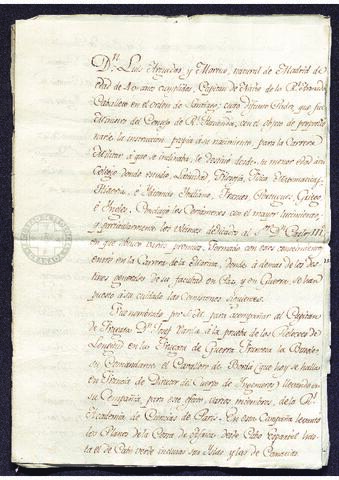 Dn. Luis Arguedas, y Marrus, natural de Madrid de
edad de 40 años cumplidos, Capitan de Navio de la Rl. Armada
Caballero en el orden de Santiago; cuyo difunto Padre, que fue
Ministro del Consejo de Rl. Hacienda, con el objeto de proporcio
narle la instruccion propia a su nacimiento, para la Carrera
Militar a que se inclinaba, le destinó desde su menor edad a un
Colegio donde estudió, Latinidad, Filosofia, Fisica, Matematicas,
Historia, e Idiomas Italiano, Frances, Griego
e Ingles. Concluyó los Certamenes con el mayor lucimiento,
y particularmente los ultimos dedicados al Sr. Dn. Carlos III.
en que obtuvo varios premios. Formado con estos conocimientos
entró en la Carrera de la Marina, donde a demas de los des
tinos generales de su facultad en Paz, y en Guerra, se han
puesto a su cuidado las Comisiones siguientes.
Fue nombrado por S.M. para acompañar al Capitan
de Fragata Dn. Josef Varela, a la prueba de los Reloxes de
Longitud en las Fragata de Guerra Francesa la
su Comandante el Caballero de Borda (que hoy se halla
en Francia de Director del Cuerpo de Ingenieros) llevando en
su Compañia, para este efecto, varios miembros, de la Rl.
Academia de Ciencias de Paris. En esta Campaña levantó
los Planos de la Costa de Africa, desde Cabo Espartel hasta
el de Cabo verde inclusas sus Islas y las de Canarias.